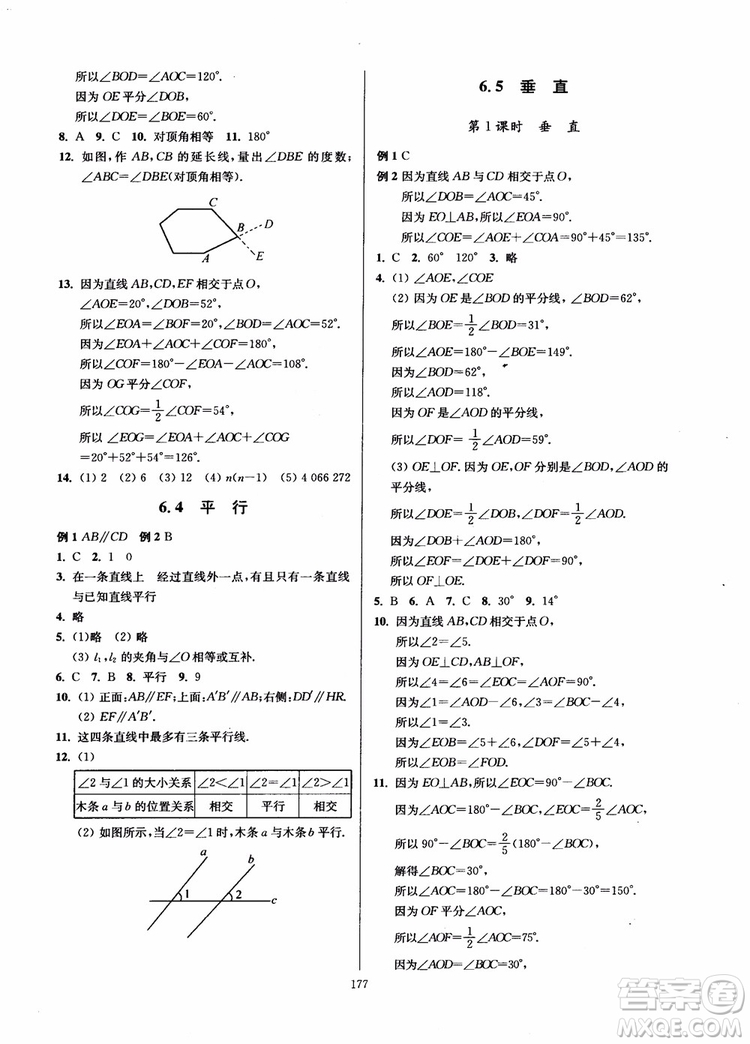 所以∠BOD=∠AOC=120°.
因为 OE 平分∠DOB,
所以∠DOE=∠BOE=60°.
8. A 9. C 10. 对顶角相等 11. 180°
12. 如图,作 AB,CB 的延长线,量出∠DBE 的度数;
∠ABC=∠DBE(对顶角相等).
C
B
D
A
E
13. 因为直线 AB,CD,EF 相交于点 O,
∠AOE=20°,∠DOB=52°,
所以∠EOA=∠BOF=20°,∠DOB=∠AOC=52°.
因为∠EOA+∠AOC+∠COF=180°,
所以∠COF=180°-∠EOA-∠AOC=108°.
因为 OG 平分∠COF,
所以∠COG=1/2∠COF=54°,
所以∠EOG=∠EOA+∠AOC+∠COG
=20°+52°+54°=126°.
14. (1) 2 (2) 6 (3) 12 (4) n(n-1) (5) 4 066 272
6.4 平 行
例 1 AB∥CD 例 2 B
1. C 2. 1 0
3. 在一条直线上 经过直线外一点,有并且只有一条直线
与已知直线平行
4. 略
5. (1)略 (2)略
(3) l₁,l₂ 的夹角与∠O 相等或互补.
6. C 7. B 8. 平行 9. 9
10. (1) 正面:AB∥EF;上面:A′B′∥AB;右侧:DD′∥HR.
(2) EF∥A′B′.
11. 这四条直线中最多有三条平行线.
12. (1)
∠2 与∠1 的大小关系 ∠2<∠1 ∠2=∠1 ∠2>∠1
木条 a 与 b 的位置关系 相交 平行 相交
(2) 如图所示,当∠2=∠1 时,木条 a 与木条 b 平行.
a
b
1
2
c
6.5 垂 直
第 1 课时 垂 直
例 1 C
例 2 因为直线 AB 与 CD 相交于点 O,
所以∠DOB=∠AOC=45°.
因为 EO⊥AB,所以∠EOA=90°.
所以∠COE=∠AOE+∠COA=90°+45°=135°.
1. C 2. 60° 120° 3. 略
4. (1) ∠AOE,∠COE
(2) 因为 OE 是∠BOD 的平分线,∠BOD=62°,
所以∠BOE=1/2∠BOD=31°,
所以∠AOE=180°-∠BOE=149°.
因为∠BOD=62°,
所以∠AOD=118°.
因为 OF 是∠AOD 的平分线,
所以∠DOF=1/2∠AOD=59°.
(3) OE⊥OF. 因为 OE,OF 分别是∠BOD,∠AOD 的
平分线,
所以∠DOE=1/2∠BOD,∠DOF=1/2∠AOD.
因为∠DOB+∠AOD=180°,
所以∠DOE+∠DOF=90°,
所以 OF⊥OE.
5. B 6. A 7. C 8. 30° 9. 14°
10. 因为直线 AB,CD 相交于点 O,
所以∠2=∠5.
因为 OE⊥CD,AB⊥OF,
所以∠4=∠6=∠COE=90°,
因为∠1=∠AOD-∠6,∠2=∠COE-∠3,
所以∠1=∠3.
因为∠EOB=∠5+∠6,∠DOF=∠2+∠4,
所以∠EOB=∠FOD.
11. 因为 EO⊥AB,所以∠AOE=90°-∠BOC.
因为∠AOC=180°-∠BOC,∠AOE=2/5∠AOC,
所以 90°-∠BOC=2/5(180°-∠BOC),
解得∠BOC=30°,
所以∠AOC=180°-∠BOC=180°-30°=150°.
因为 OF 平分∠AOC,
所以∠AOF=1/2∠AOC=75°.
因为∠AOD=∠BOC=30°,
177
答案圈
MXQE.COM